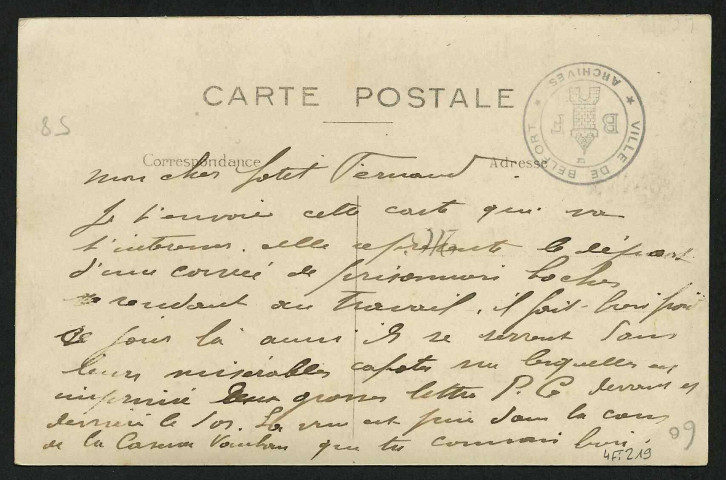 CARTE POSTALE
VILLE DE BELFORT
ARCHIVES
B F
85
Correspondance
Adresse
mon cher petit Fernand
Je t'envoie cette carte qui va
t'interesser. elle représente le départ
d'une corvée de prisonniers boches
se rendant au travail, il fait bien froid
ce jour là aussi ils se serrent dans
leurs misérables capotes sur lesquelles est
imprimé deux grosses lettre P. G devant et
derrière le dos. La vue est prise dans la cour
de la Caserne Vauban que tu connais bien.
4Fi 219